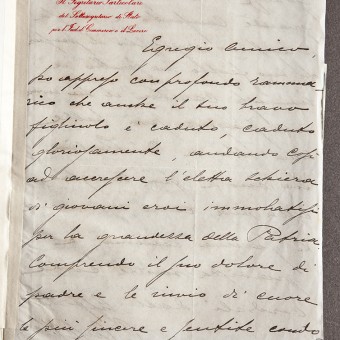 Il Segretario Particolare
del Sottosegretario di Stato
per l'Ind. il Commercio e il Lavoro
Egregio Amico,
ho appreso con profondo ramma-
rico che anche il tuo bravo
figliuolo è caduto, caduto
gloriosamente, andando così
ad accrescere l'eletta schiera
di giovani eroi immolatisi
per la grandezza della Patria
Comprendo il suo dolore di
padre e le invio di cuore
le più sincere e sentite condo